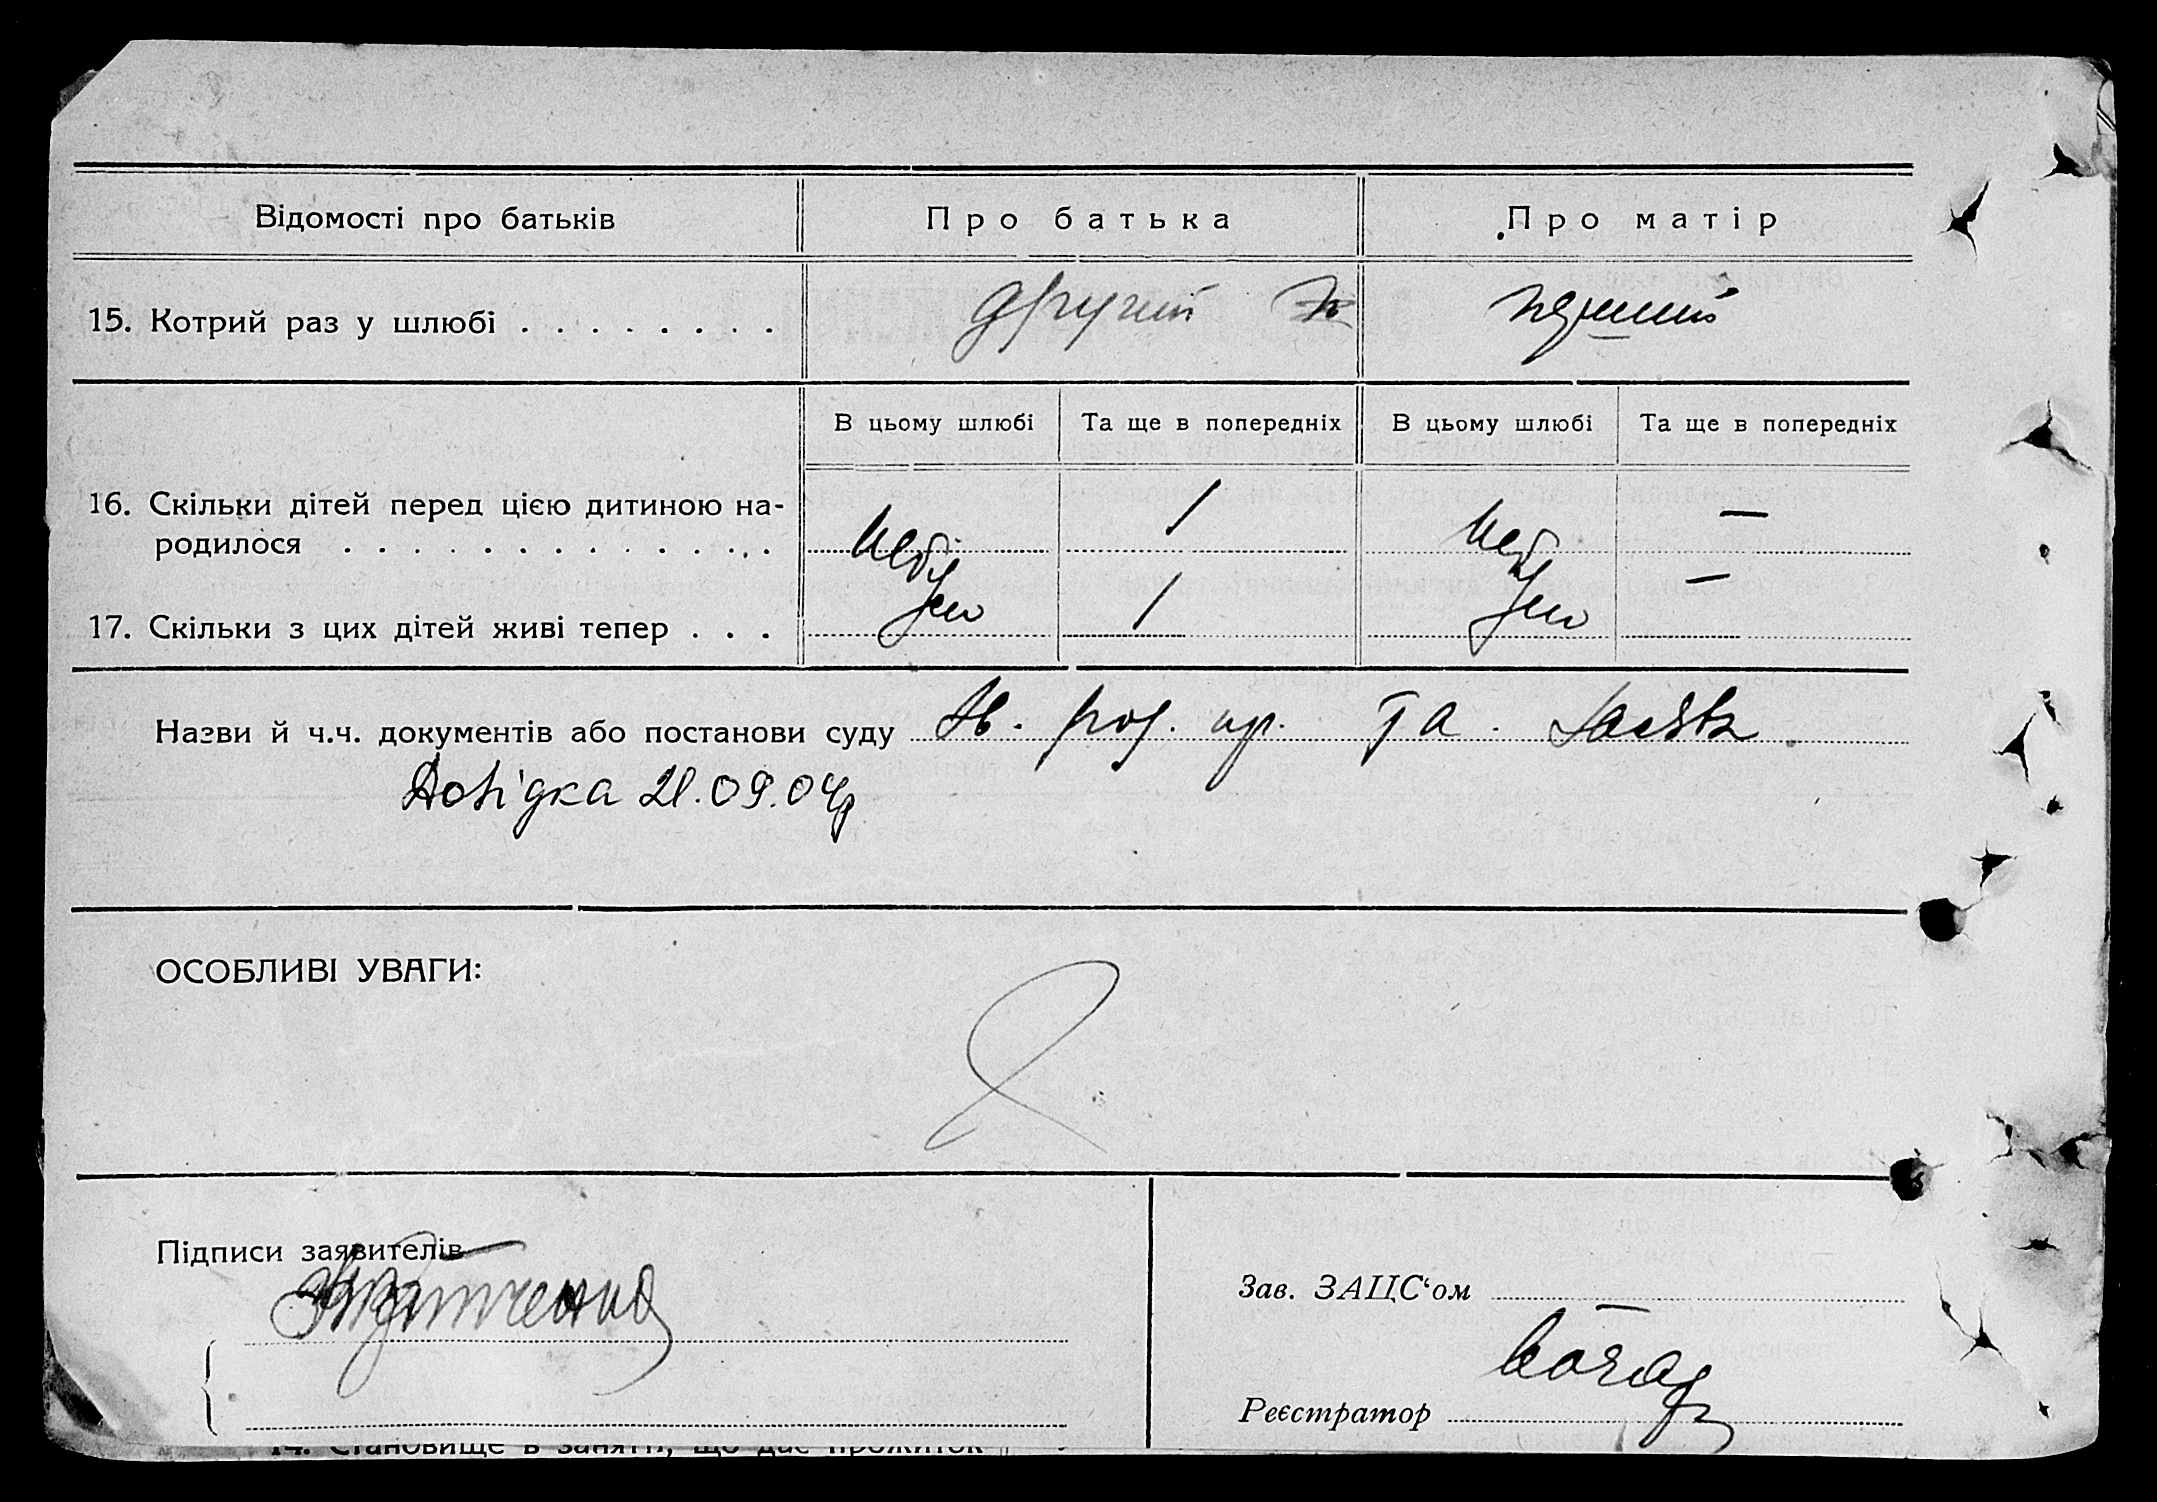 Відомості про батьків Про батька Про матір
15. Котрий раз у шлюбі . . . . . . . . другий перший
В цьому шлюбі Та ще в попередніх В цьому шлюбі Та ще в попередніх
16. Скільки дітей перед цією дитиною на-
родилося . . . . . . . . . . . . . 1 —
17. Скільки з цих дітей живі тепер . . . 1 —
Назви й ч.ч. документів або постанови суду
Довідка 21.09.04р
ОСОБЛИВІ УВАГИ:
Підписи заявителів
Зав. ЗАЦС‘ом
Реєстратор
14. Становище в занятті, що дає прожиток